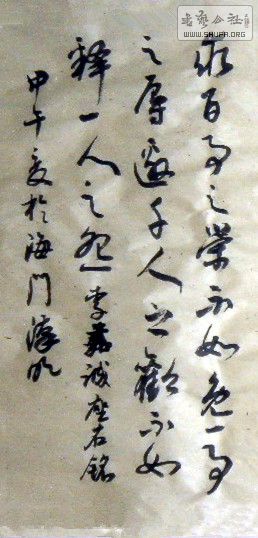 求百事之榮不如免一事
之辱邀千人之歡不如
釋一人之怨 李嘉誠座右銘
甲午夏於海門
书艺公社
WWW.SHUFA.ORG